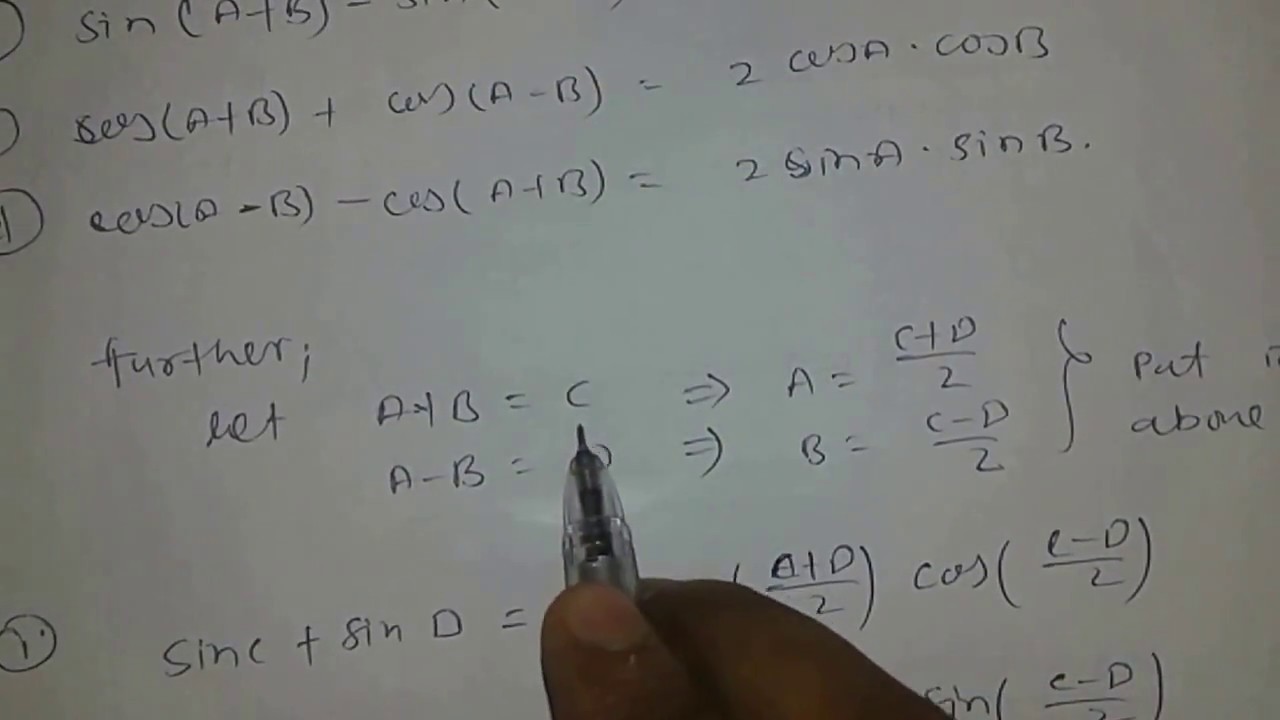 sin (A+B) - sin(
cos(A+B) + cos(A-B) = 2 cosA · cosB
cos(A-B) - cos(A+B) = 2 sinA · sinB.
further;
let A+B = C ⇒ A = C+D/2 } put
A-B = D ⇒ B = C-D/2 above
1. sinc + sin D = (C+D/2) cos(C-D/2)
sin(C-D/2)